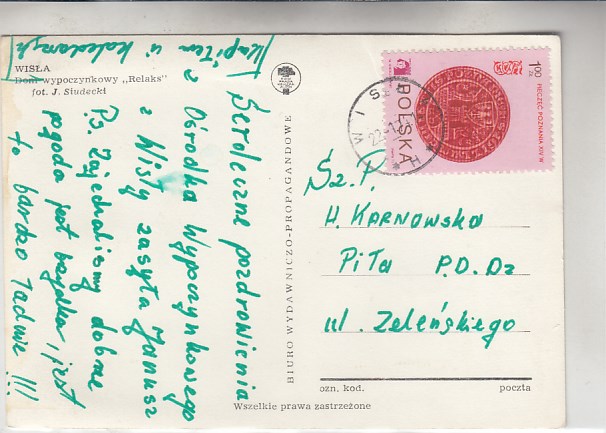 WISŁA
Dom wypoczynkowy „Relaks"
fot. J. Siudecki
Serdeczne pozdrowienia
z Ośrodka Wypoczynkowego
z Wisły zasyła Janusz
Ps. Zajechaliśmy dobrze
pogoda jest brzydka, jest
tu bardzo ładnie !!!
BIURO WYDAWNICZO-PROPAGANDOWE
1,00 ZŁ
PIECZĘĆ POZNANIA XIV W
POLSKA
Sz. P.
H. KARNOWSKA
PiTa P.D.Dz
ul. Zeleńskiego
ozn. kod. poczta
Wszelkie prawa zastrzeżone